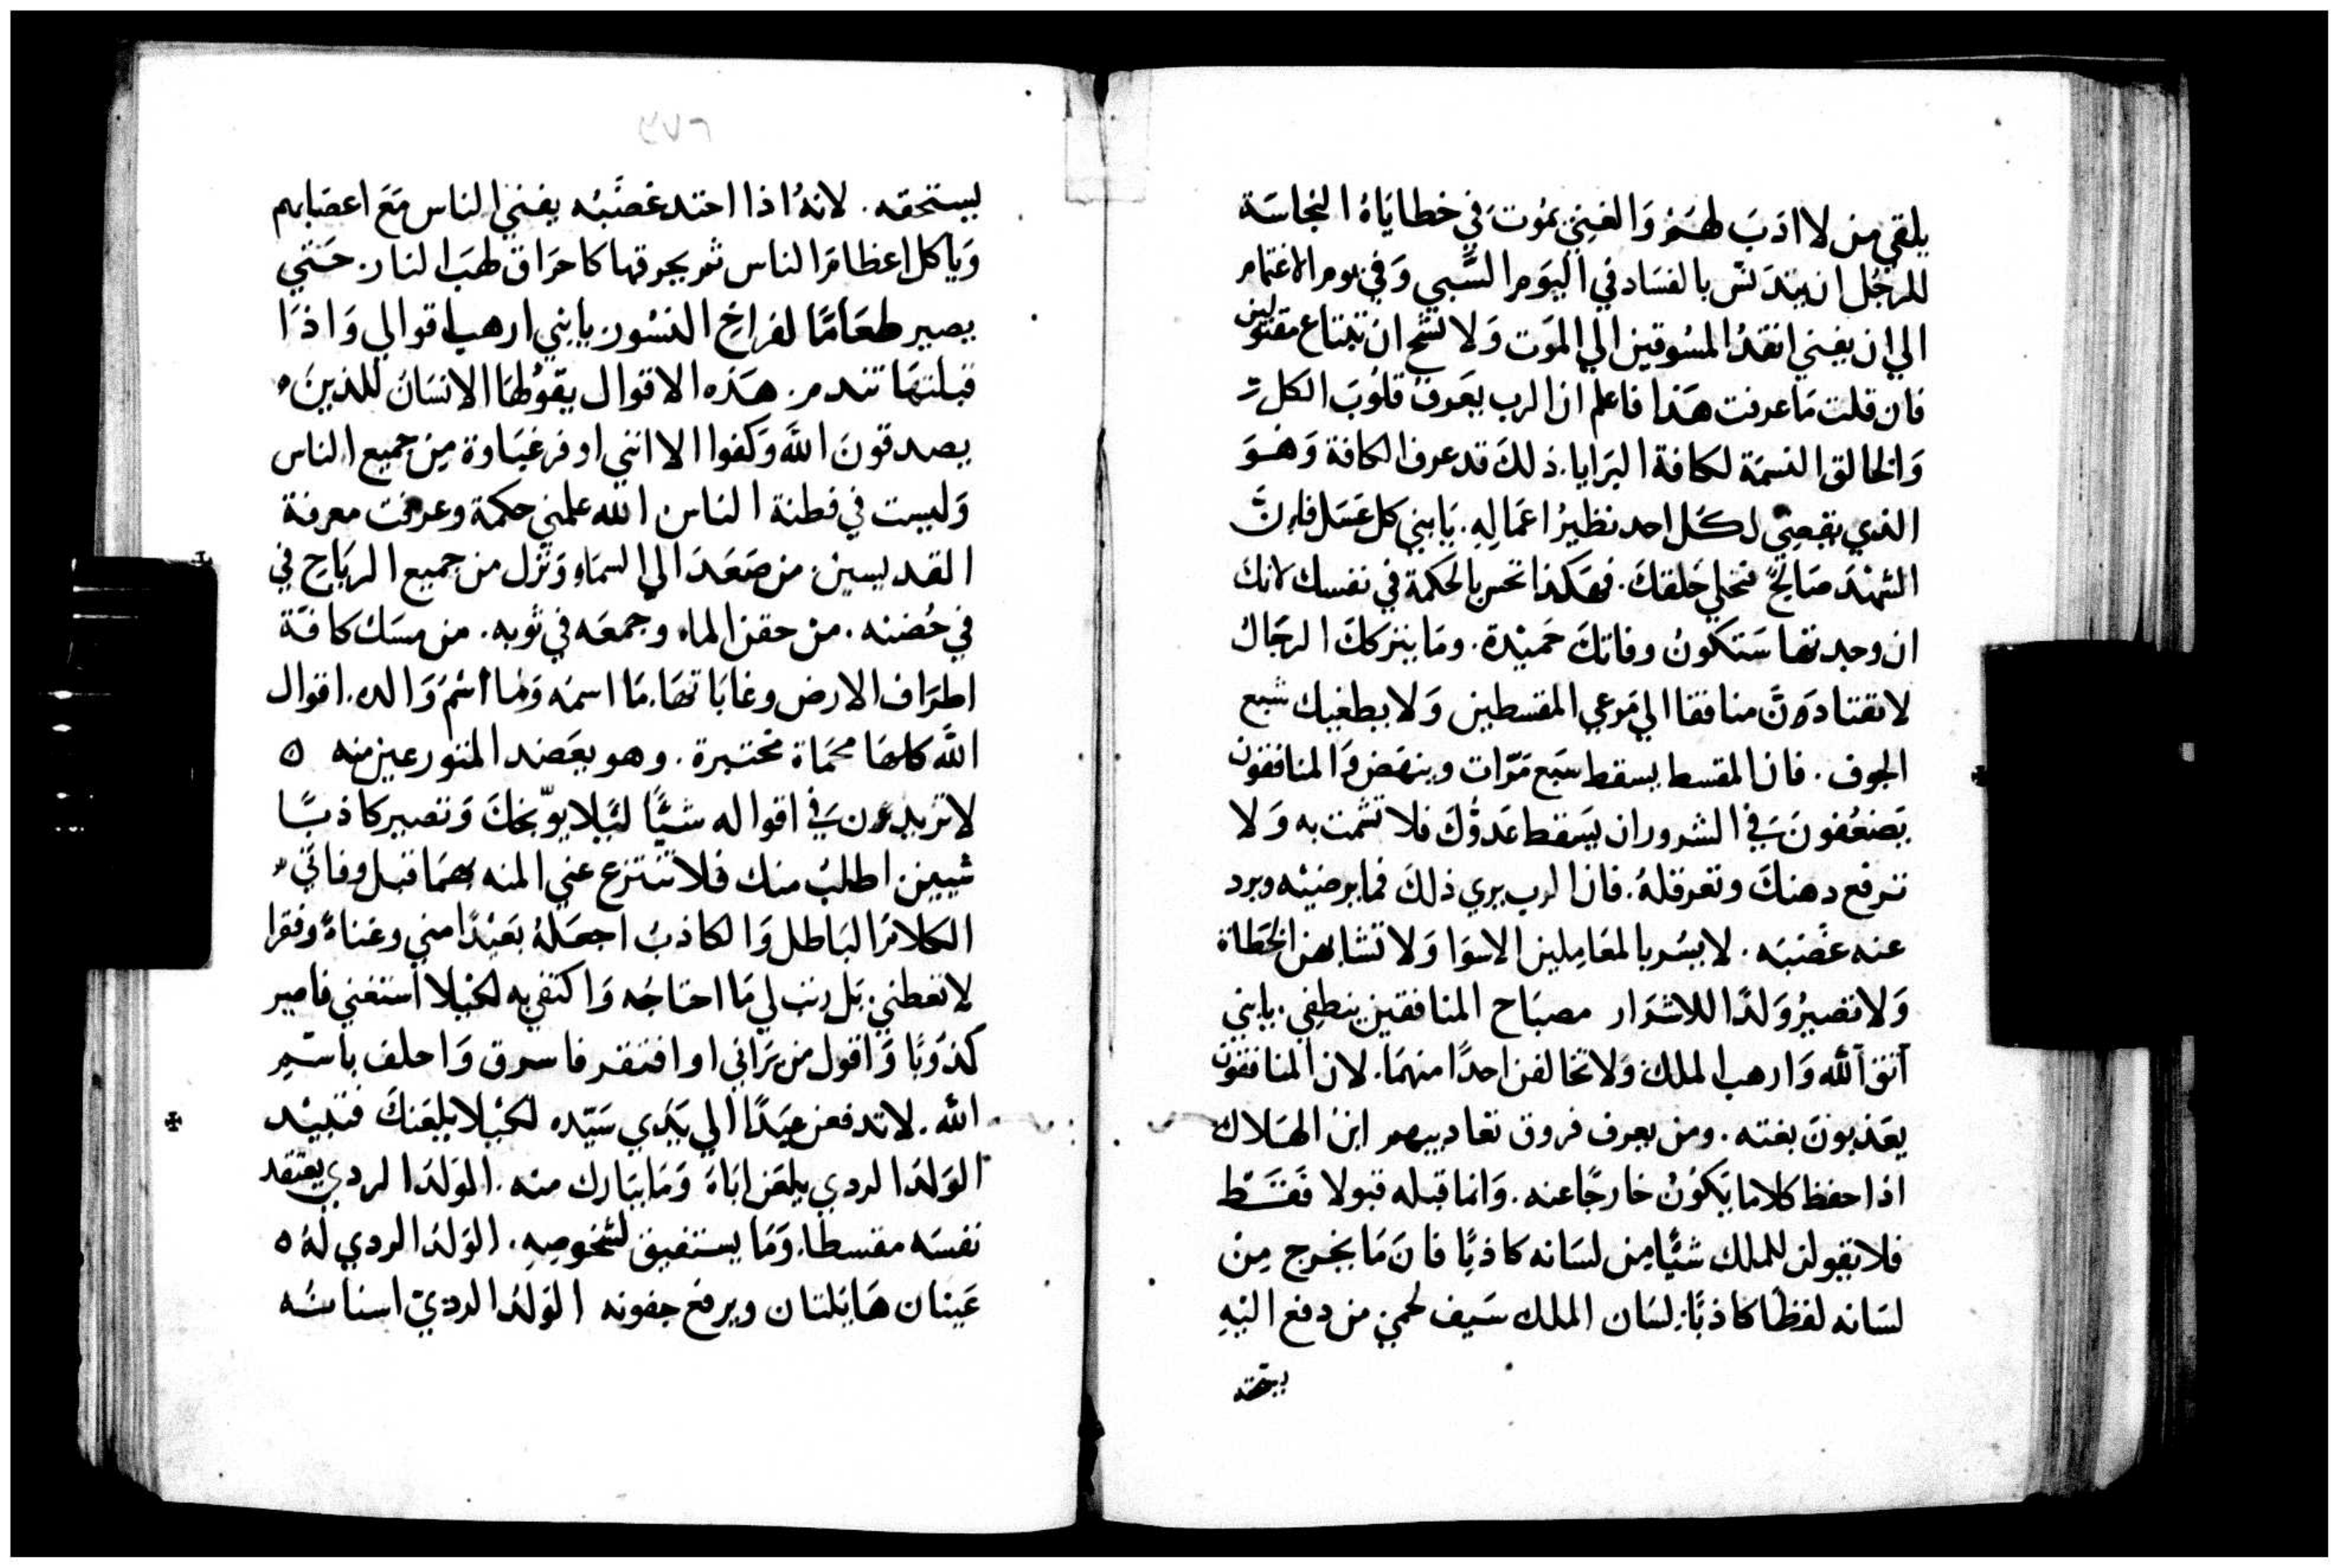 يلقي من لا ادَبَ لهَم وَالغبيّ يموُت في خطايَاهُ النجاسَة
للرجُل ان يتدَنسّ بالفسَاد في اليَوم السّبي وَفي يوم الاغتمام
الي ان يفني انقذ المسُوقين الي الموَت وَلا تشح ان تبتاع مقتولين
فان قلت مَا عرفت هَذا فاعلم ان الرب يعَرف قلُوبَ الكل
وَالخالق النسمَة لكافة البرَايا. ذلكَ قد عرف الكافة وَهُوَ
الذي يقبض لكُل احد نظيرُ اعمَالِهِ. يَا بني كل عَسَل فانَّ
الشهْدَ صَالحٌ فتحلي حَلقكَ. فهَكذا تحس بالحكمة في نفسك لانك
ان وجدتها سَتكونُ وفاتكَ حَميْدة. ومَا يتركك الرجَاءُ
لا تقتادَنَّ منافقا الي مَرعي المقسطين وَلا يطغيك شبع
الجوف. فان المقسط يسقط سَبع مَرّات وينهَض وَالمنافقون
يَضعُفونَ في الشرور ان يسَقط عَدوُّكَ فلا تشمت به وَلا
ترفع دهنكَ وتعرقلهُ. فان الرب يري ذلكَ فما يرضيْه ويرد
عنه غضبَه. لا يسُر بالمعَامِلين الاسوَا وَلا تشابهن الخطاة
وَلا تصيرُ وَلدًا للاشرَار مصبَاح المنافقين ينطفِي. يا بني
اتق الله وَارهب الملك وَلا تخالفن احدًا منهمَا. لان المنافقون
يعَذبونَ بغته. ومن يعرف فروق تعاديبهم ابن الهَلاك
اذا حفظ كلاما يَكوُنُ خارجًا عنه. وَانما قبله قبولا فقسَط
فلا يقولن للملك شيًّا من لسَانه كاذبًا فانَ مَا يخرج مِنْ
لسَانه لفظًا كاذبًا. لسَان الملك سَيف لحمي من دفع اليْهِ
يستحقه
٢٧٦
يستحقه. لانهُ اذا احتد غضَبُه يفني الناس مَعَ اعصَابهم
وَياكل اعظامَ الناس ثم يحرقها كاحرَاق لهَب النار. حَتي
يصير طعَامًا لفراخ النسُور يا بني ارهب اقوالي وَاذَا
قبلتهَا تندم. هَذه الاقوال يقوُلهَا الانسَان للذينَ
يصدقونَ اللهَ وَكفوا الا انني اوفر غبَاوة مِن جميع الناس
وَليست في فطنة الناس الله علمني حكمة وعرفت معرفة
القديسين من صَعَدَ الي السمَاءِ وَنزل من جميع الريَاحِ في
في حُضنه. منْ حقن الماء وجمعَه في ثوبه. من مسَك كافَّة
اطرَاف الارض وغايَاتهَا. مَا اسمَه وَما اسْمَ وَالده. اقوال
اللهَ كلهَا محمَاة مختبرة. وهو يعَضد المتورعين منه
لا تزيدون في اقواله شيًّا ليَلا يوّبخكَ وَتصير كاذبًا
شيين اطلبُ منك فلا تنتزع عني المنه بهمَا قبل وفاتي
الكلامَ البَاطل وَالكاذبُ اجعَلهُ بعَيْدًا مني وغناءً وفقرا
لا تعطني. بَل رتب لي مَا احتاجُه وَاكتفي به لكيْلا استغني فاصير
كذوُبًا وَاقول من يَراني او افتقر فاسرق وَاحلف باسْمِ
الله. لا تدفعن عبَدًا الي يَدَي سَيّده لكيْلا يلعَنكَ فتبيْد
الوَلدَ الردي يلعَن ابَاهَ وَمَا يبَارك منْه. الوَلدَ الردي يعتقد
نفسَه مقسطا. وَمَا يستفيق لشخوصِهِ. الوَلدُ الردي لهُ
عَينان هَايلتان ويرفع جفونه الوَلدُ الرديّ اسنانُه